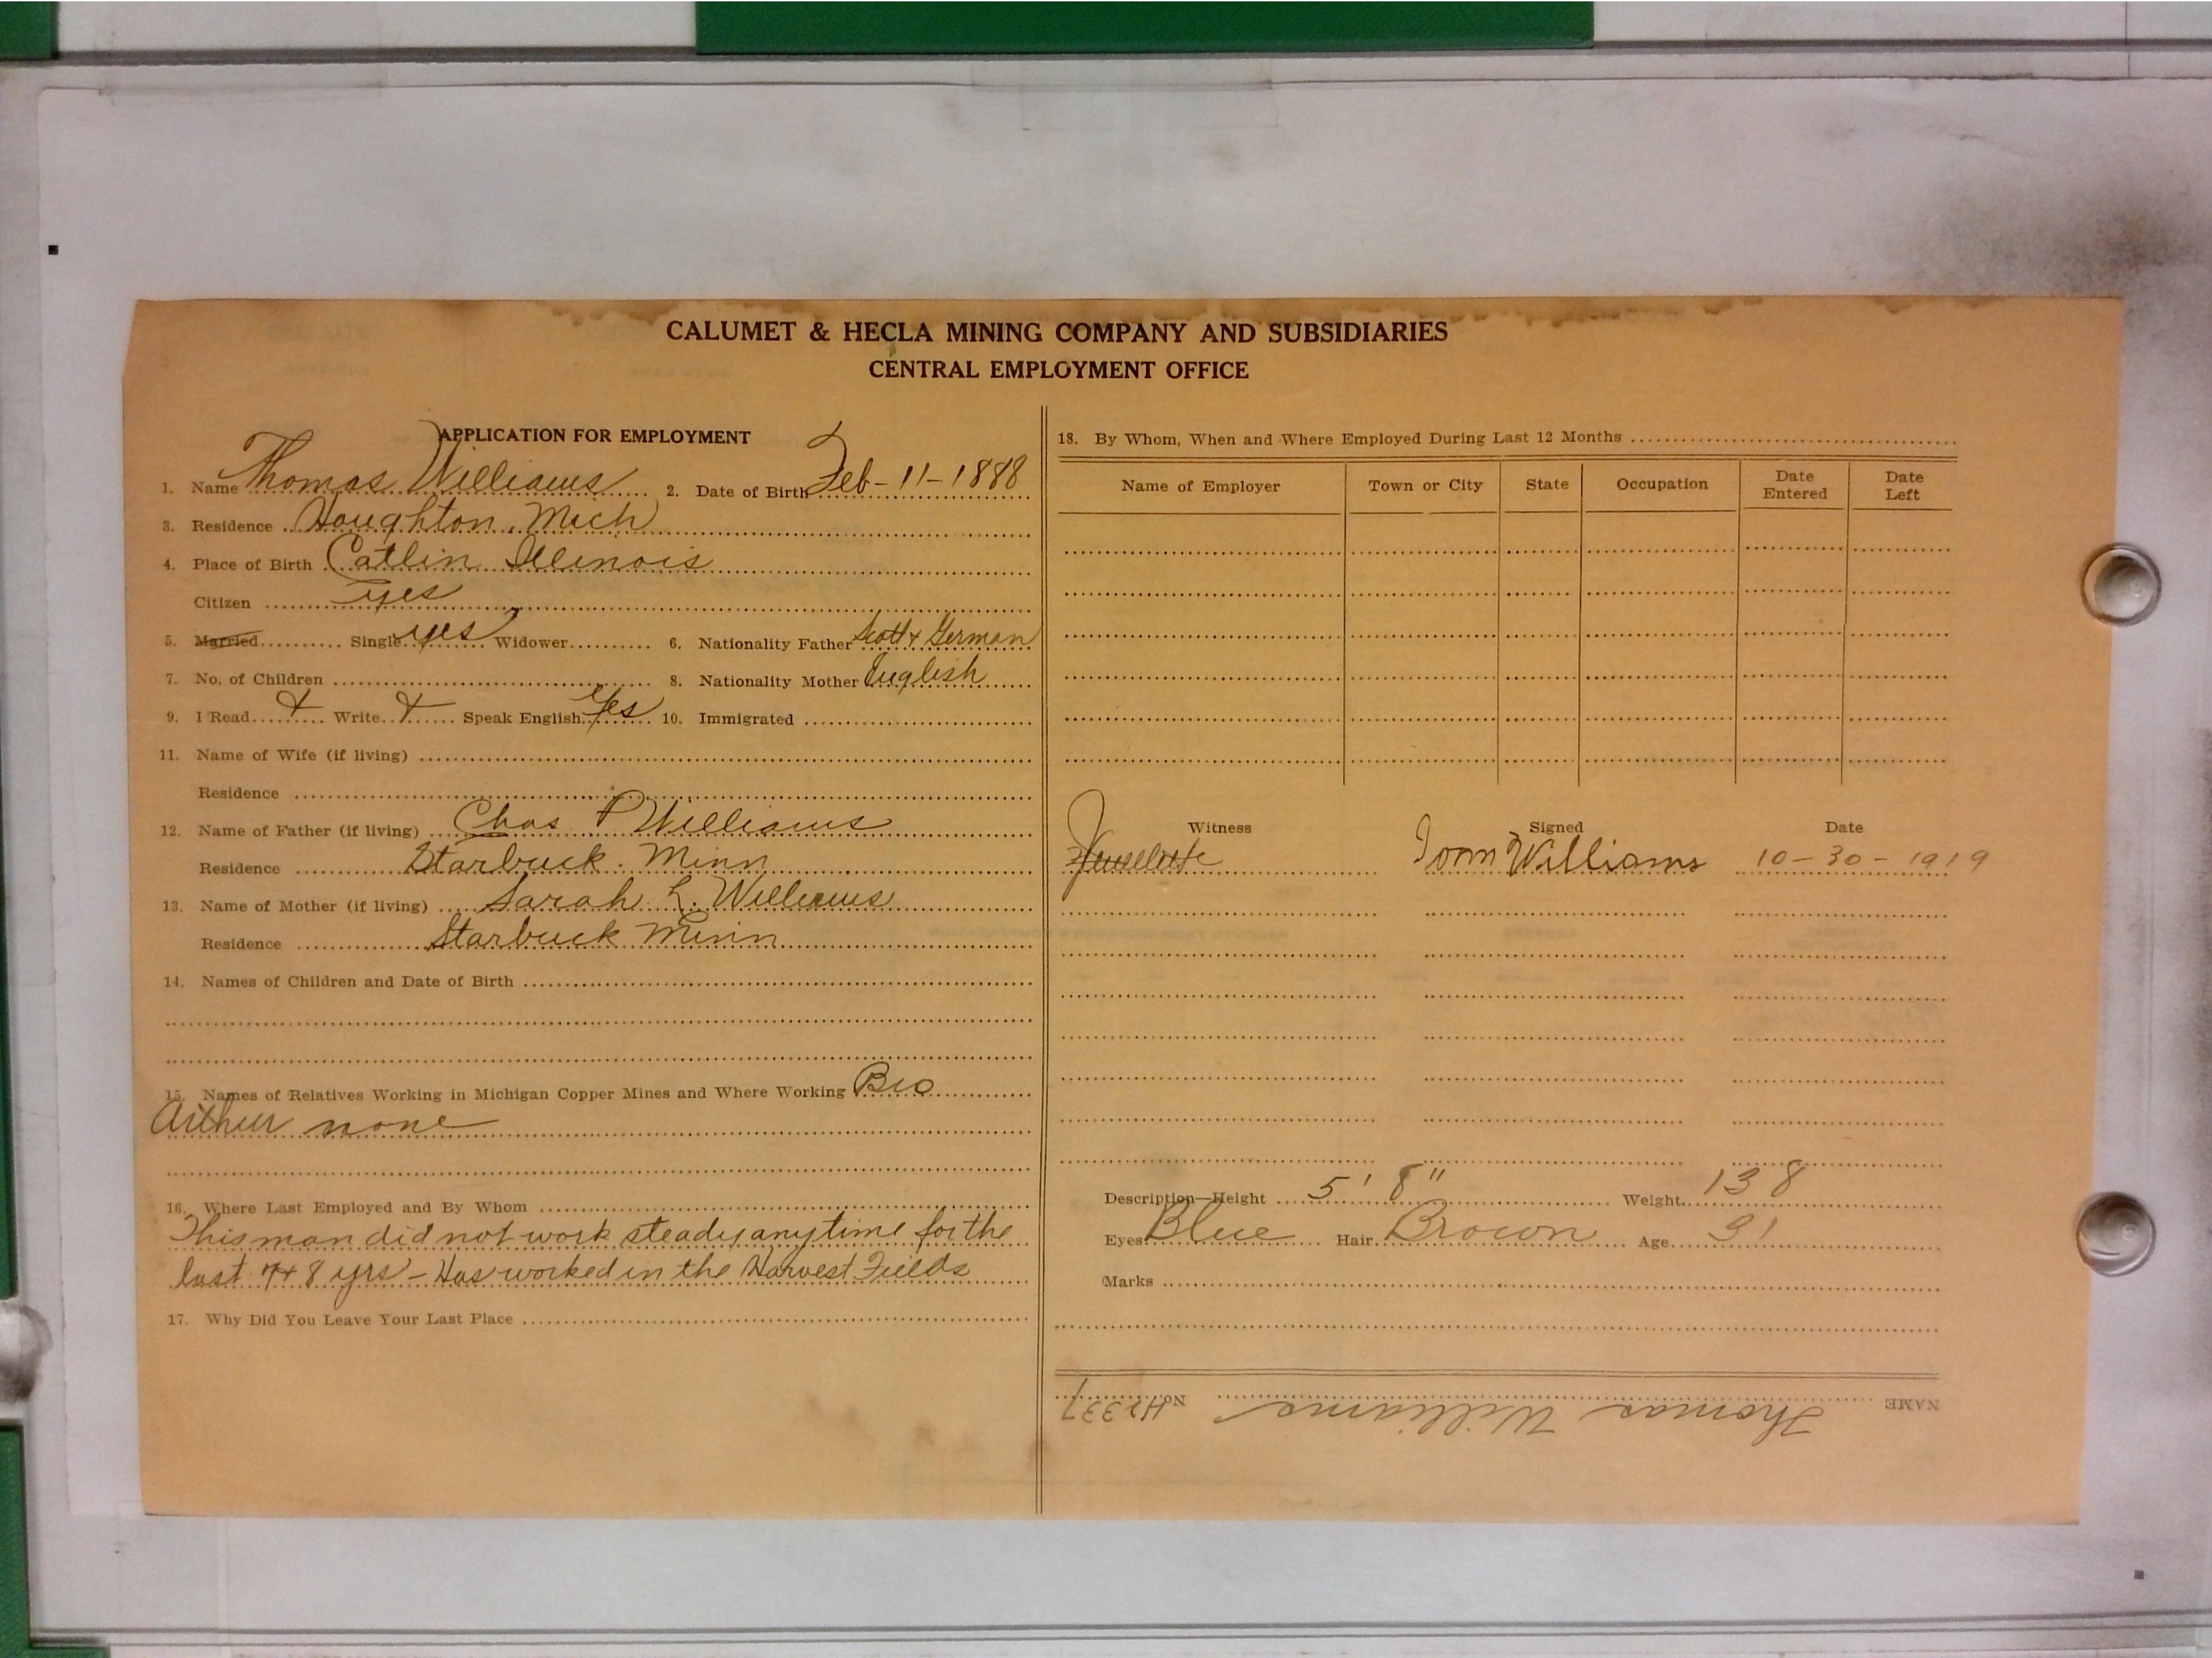 CALUMET & HECLA MINING COMPANY AND SUBSIDIARIES
CENTRAL EMPLOYMENT OFFICE
APPLICATION FOR EMPLOYMENT
1. Name Thomas Williams 2. Date of Birth Feb - 11 - 1888
3. Residence Houghton, Mich
4. Place of Birth Catlin Illinois
Citizen yes
5. Married Single yes Widower 6. Nationality Father Scott & German
7. No. of Children 8. Nationality Mother English
9. I Read + Write + Speak English Yes 10. Immigrated
11. Name of Wife (if living)
Residence
12. Name of Father (if living) Chas P Williams
Residence Starbuck. Minn
13. Name of Mother (if living) Sarah L. Williams
Residence Starbuck Minn
14. Names of Children and Date of Birth
15. Names of Relatives Working in Michigan Copper Mines and Where Working Bro
Arthur none
16. Where Last Employed and By Whom
This man did not work steady anytime for the
last 7 + 8 yrs - Has worked in the Harvest Fields
17. Why Did You Leave Your Last Place
18. By Whom, When and Where Employed During Last 12 Months
Name of Employer Town or City State Occupation Date Entered Date Left
Witness Signed Date
Tom Williams 10 - 30 - 1919
Description—Height 5' 8" Weight 138
Eyes Blue Hair Brown Age 31
Marks
NAME Thomas Williams No. H2337